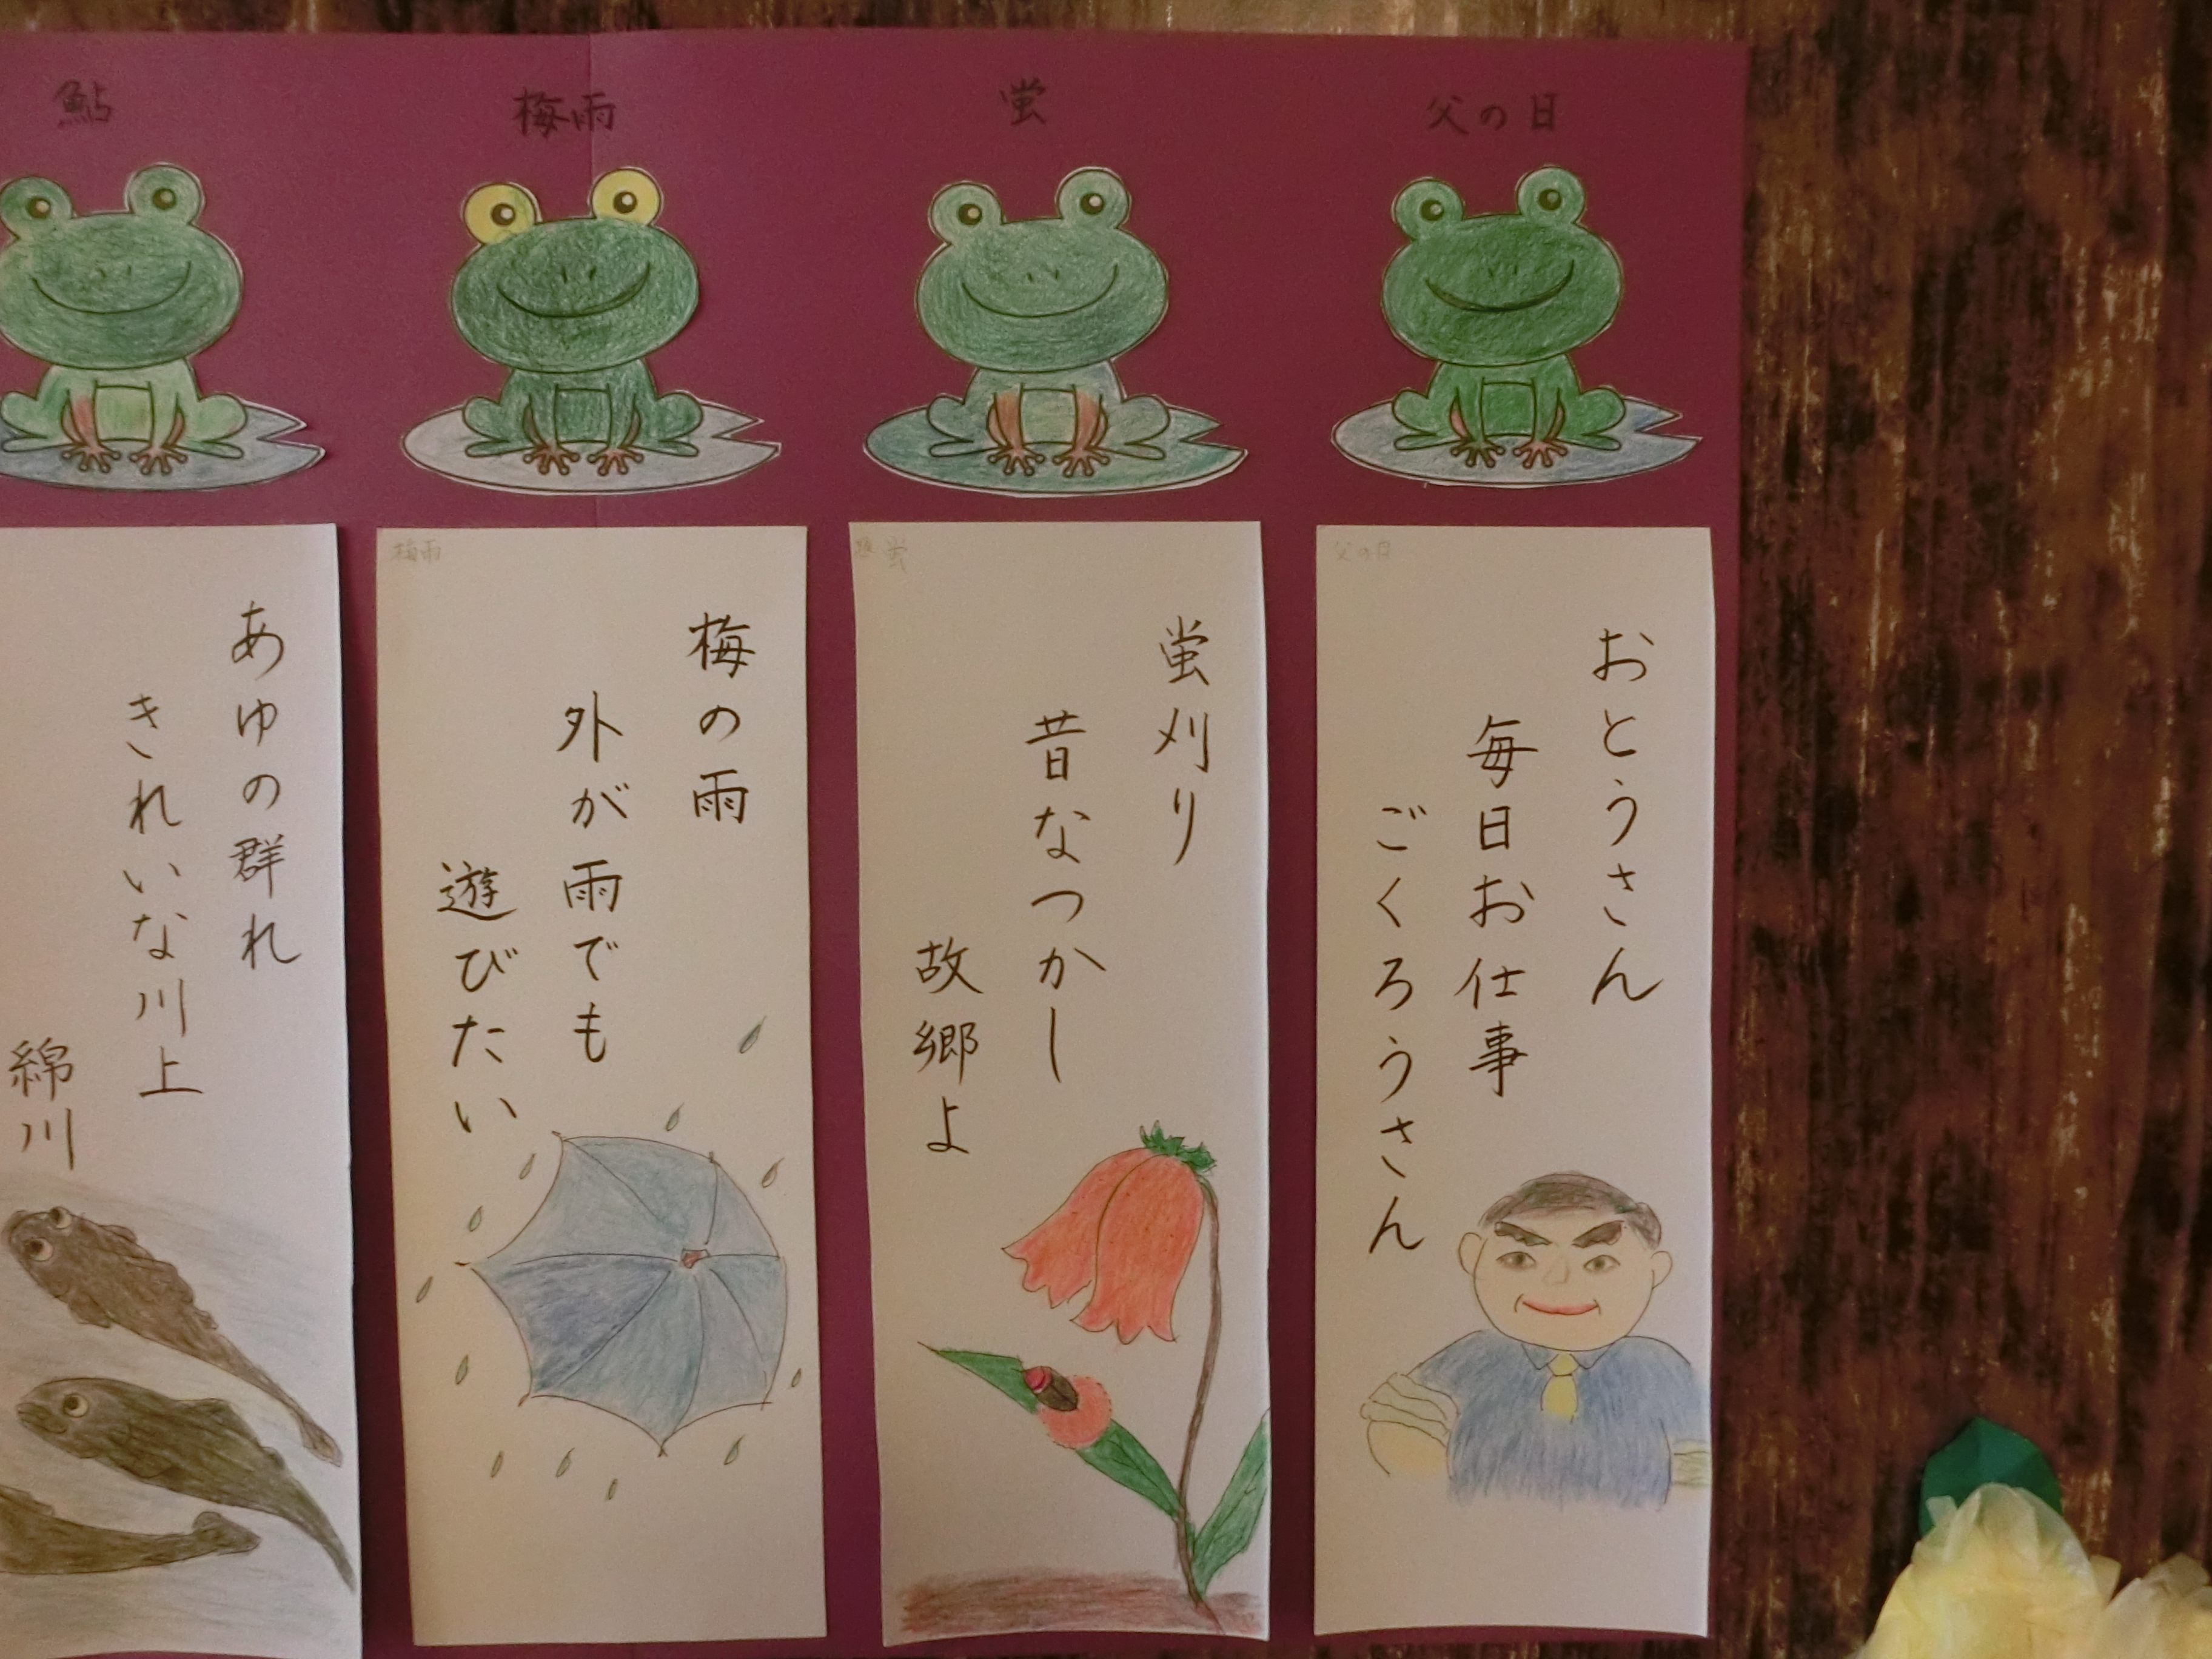 父の日
蛍
梅雨
鮎
父の日
おとうさん
毎日お仕事
ごくろうさん
蛍
蛍刈り
昔なつかし
故郷よ
梅雨
梅の雨
外が雨でも
遊びたい
あゆの群れ
きれいな川上
綿川